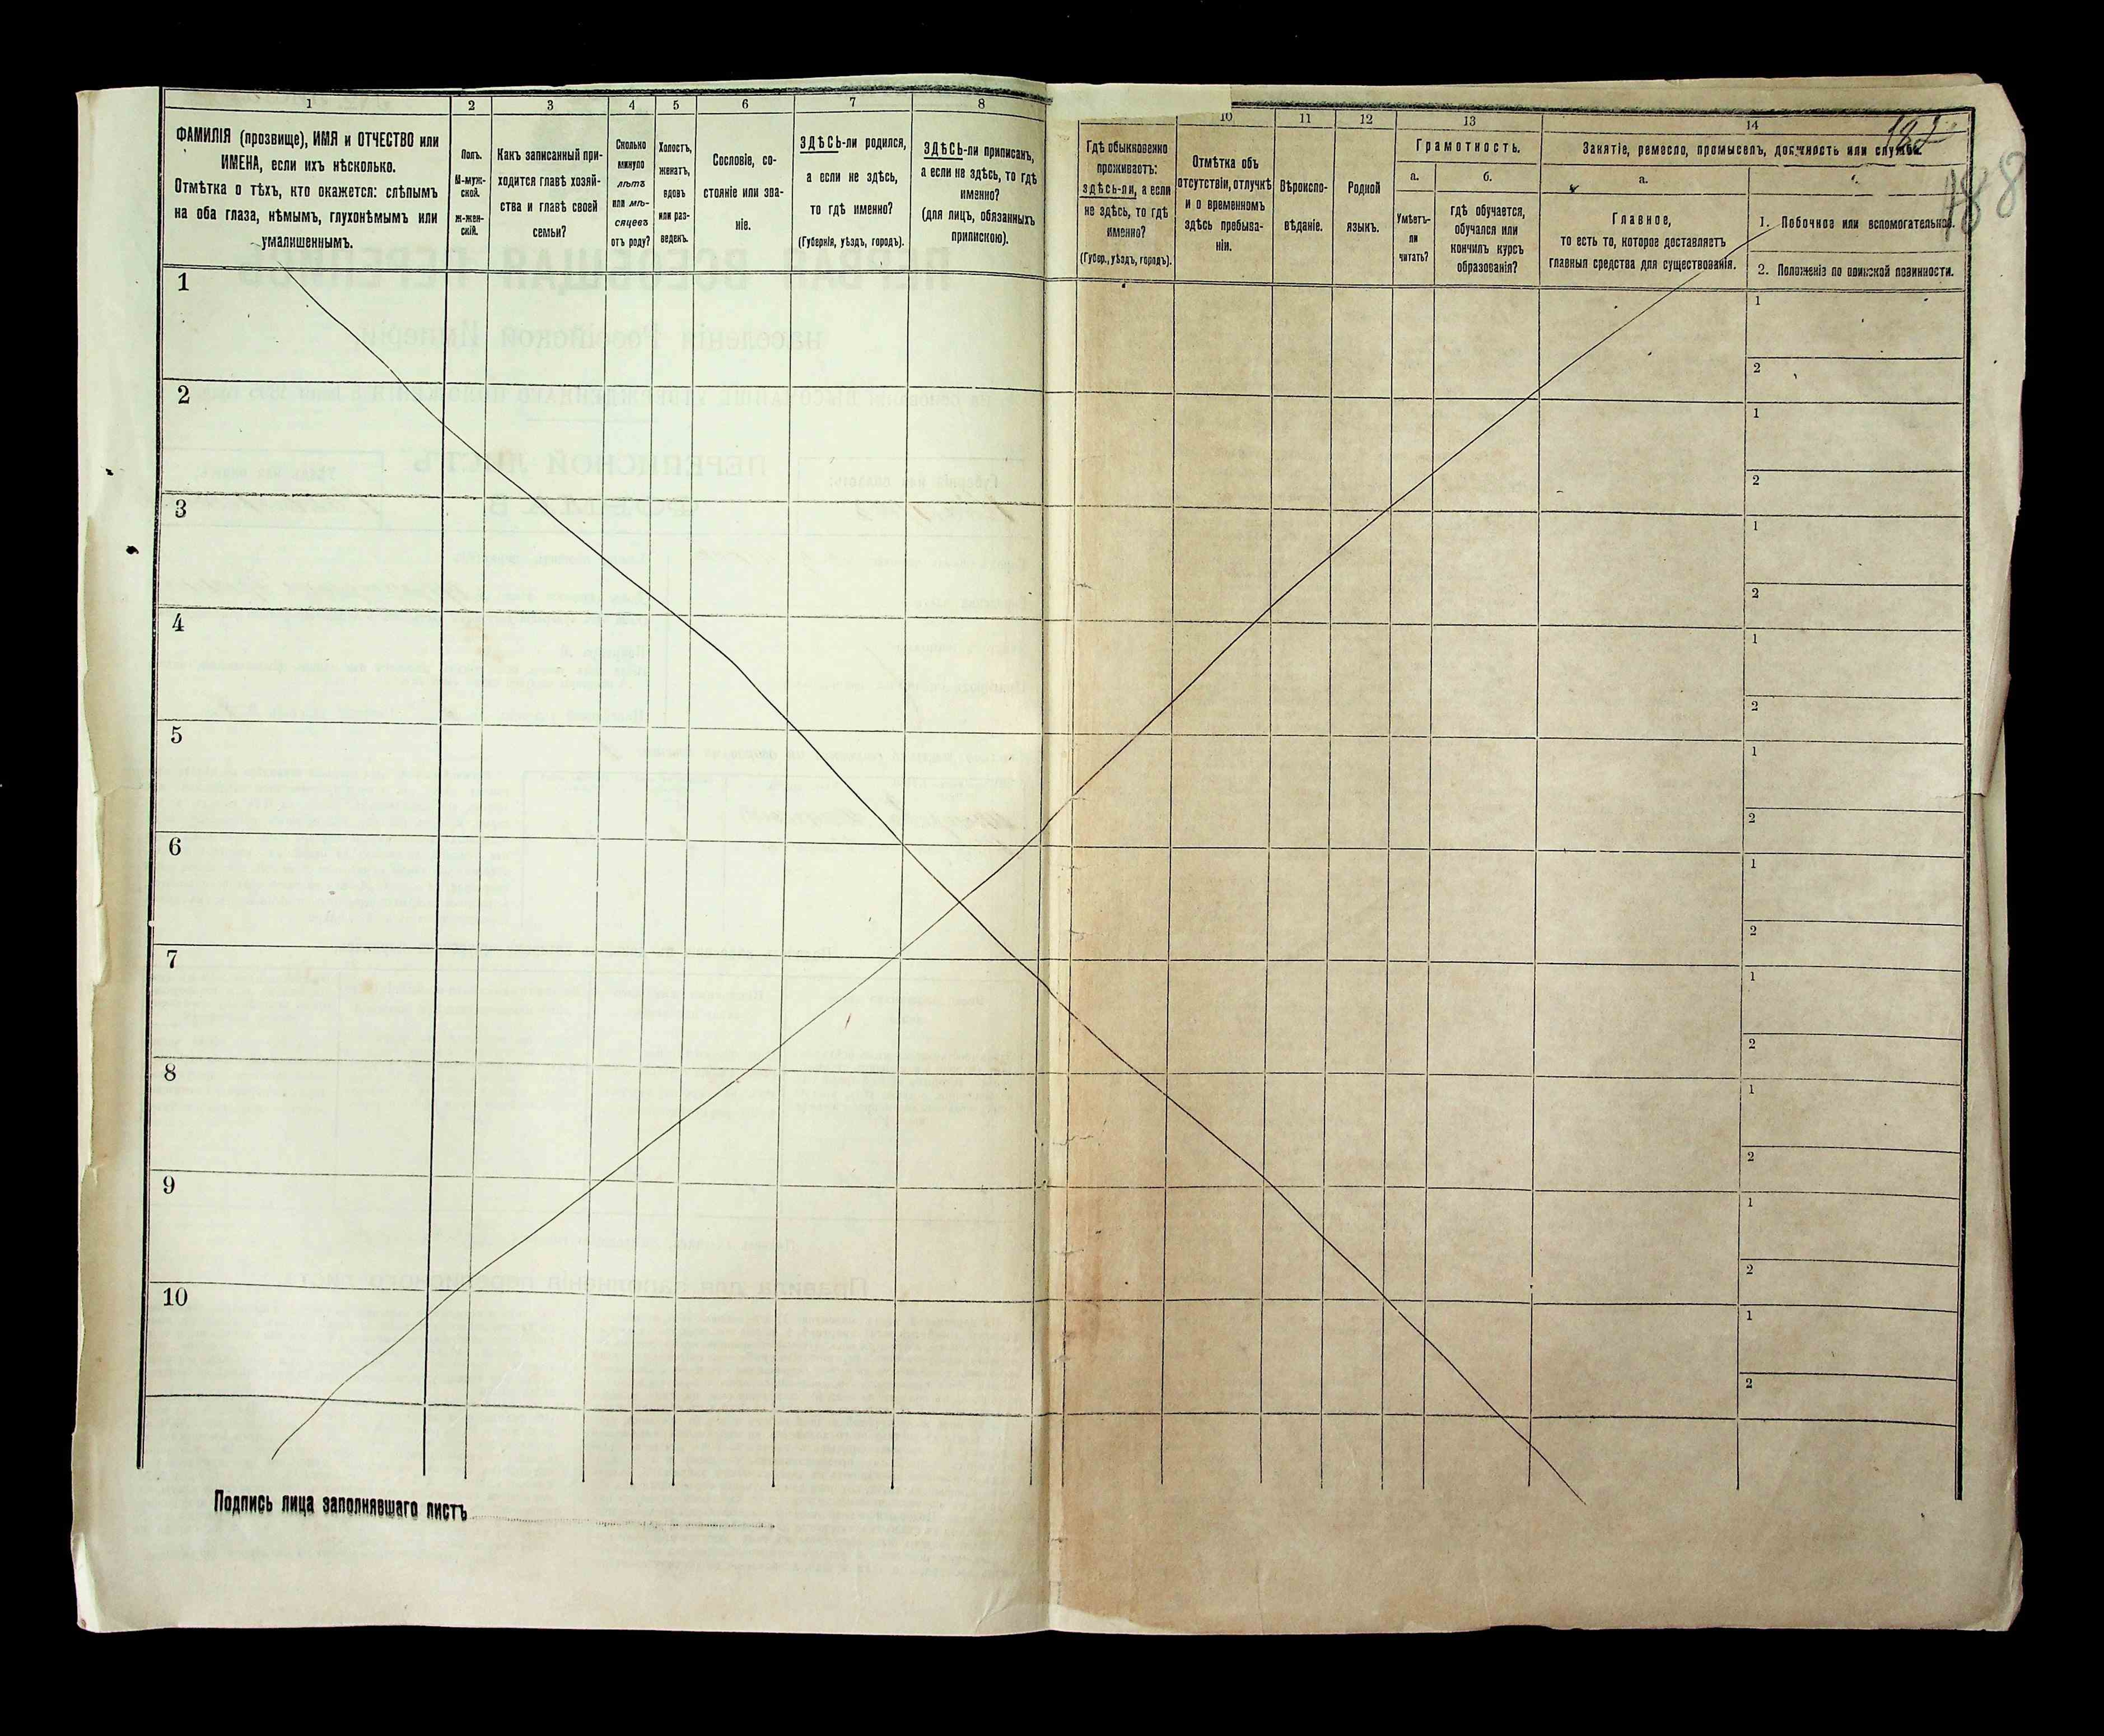 1 2 3 4 5 6 7 8
ФАМИЛІЯ (прозвище), ИМЯ и ОТЧЕСТВО или
ИМЕНА, если ихъ нѣсколько.
Отмѣтка о тѣхъ, кто окажется: слѣпымъ
на оба глаза, нѣмымъ, глухонѣмымъ или
умалишеннымъ.
Полъ.
М-муж-
ской.
ж-жен-
скій.
Какъ записанный при-
ходится главѣ хозяй-
ства и главѣ своей
семьи?
Сколько
минуло
лѣтъ
или мѣ-
сяцевъ
отъ роду?
Холостъ,
женатъ,
вдовъ
или раз-
веденъ.
Сословіе, со-
стояніе или зва-
ніе.
ЗДѢСЬ-ли родился,
а если не здѣсь,
то гдѣ именно?
(Губернія, уѣздъ, городъ).
ЗДѢСЬ-ли приписанъ,
а если не здѣсь, то гдѣ
именно?
(для лицъ, обязанныхъ
припискою).
1
2
3
4
5
6
7
8
9
10
Подпись лица заполнявшаго листъ
10 11 12 13 14
Гдѣ обыкновенно
проживаетъ:
здѣсь-ли, а если
не здѣсь, то гдѣ
именно?
(Губер., уѣздъ, городъ).
Отмѣтка объ
отсутствіи, отлучкѣ
и о временномъ
здѣсь пребыва-
ніи.
Вѣроиспо-
вѣданіе.
Родной
языкъ.
Грамотность.
а. б.
Умѣетъ-
ли
читать?
гдѣ обучается,
обучался или
кончилъ курсъ
образованія?
Занятіе, ремесло, промыселъ, должность или служба.
а.
Главное,
то есть то, которое доставляетъ
главныя средства для существованія.
1. Побочное или вспомогательное.
2. Положеніе по воинской повинности.
188
1
2
1
2
1
2
1
2
1
2
1
2
1
2
1
2
1
2
1
2